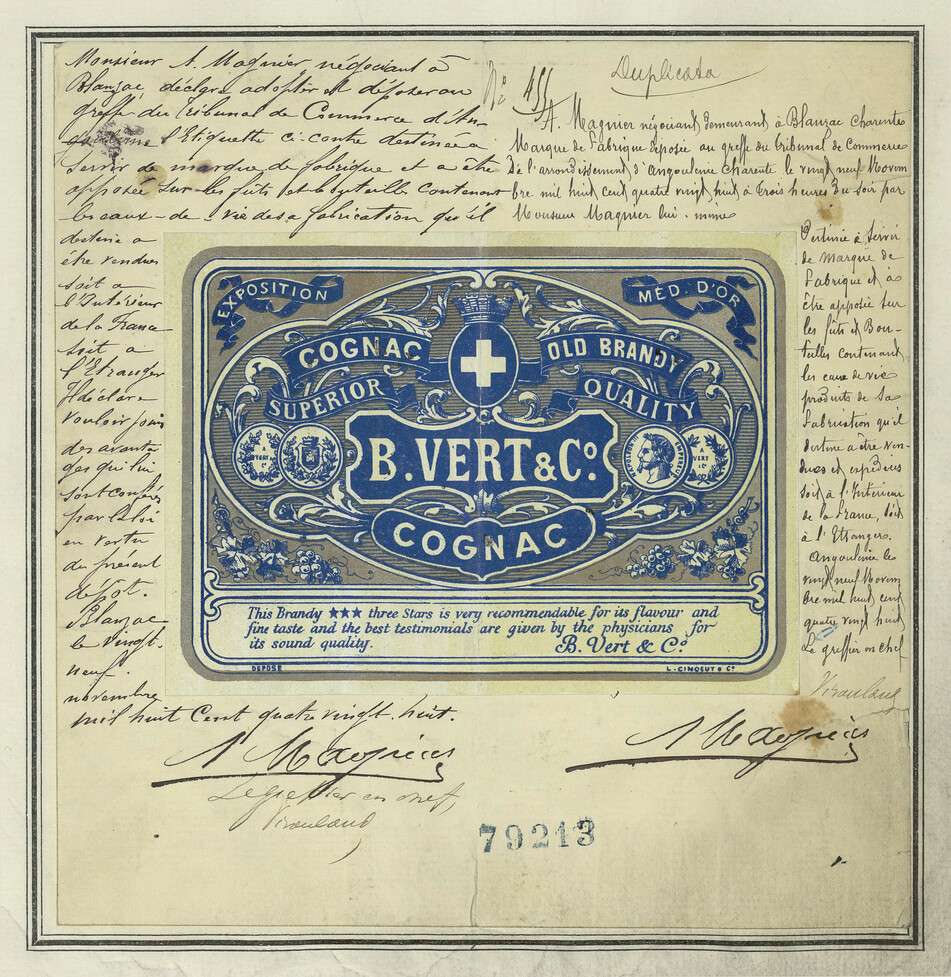 Monsieur A. Magnier négociant à
Blanzac déclare adopter et déposer au
greffe du Tribunal de Commerce d'An-
goulême l'Etiquette ci-contre destinée à
servir de marque de fabrique et a être
apposée sur les fûts et bouteilles contenant
les eaux-de-vie de sa fabrication qu'il
destine a
être vendues
soit a
l'Intérieur
de la France
soit a
l'Etranger
Il déclare
vouloir jouir
des avanta
ges qui lui
sont conférés
par la loi
en vertu
du présent
dépôt.
Blanzac
le vingt-
neuf.
novembre
mil huit Cent quatre vingt. huit.
A Magnier
Le greffier en chef,
Viroulaud
No 455
Duplicata
A. Magnier négociant demeurant à Blanzac Charente
Marque de Fabrique déposée au greffe du tribunal de Commerce
de l'arrondissement d'angoulême Charente le vingt neuf Novem
bre mil huit cent quatre vingt huit à trois heures du soir par
Monsieur Magnier lui-même
Destinée à servir
de marque de
Fabrique et à
être apposée sur
les fûts et Bou-
teilles contenant
les eaux de vie
produits de Sa
Fabrication qu'il
destine à être ven-
dues et expédiées
soit à l'Intérieur
de la France, soit
à l'Etranger.
Angoulême le
vingt neuf Novem
bre mil huit cent
quatre vingt huit
Le greffier en chef
Viroulaud
A Magnier
EXPOSITION
MÉD. D'OR
COGNAC
OLD BRANDY
SUPERIOR
QUALITY
B. VERT & Co.
COGNAC
This Brandy ★★★ three Stars is very recommendable for its flavour and
fine taste and the best testimonials are given by the physicians for
its sound quality.
B. Vert & Co.
DEPOSÉ
79213